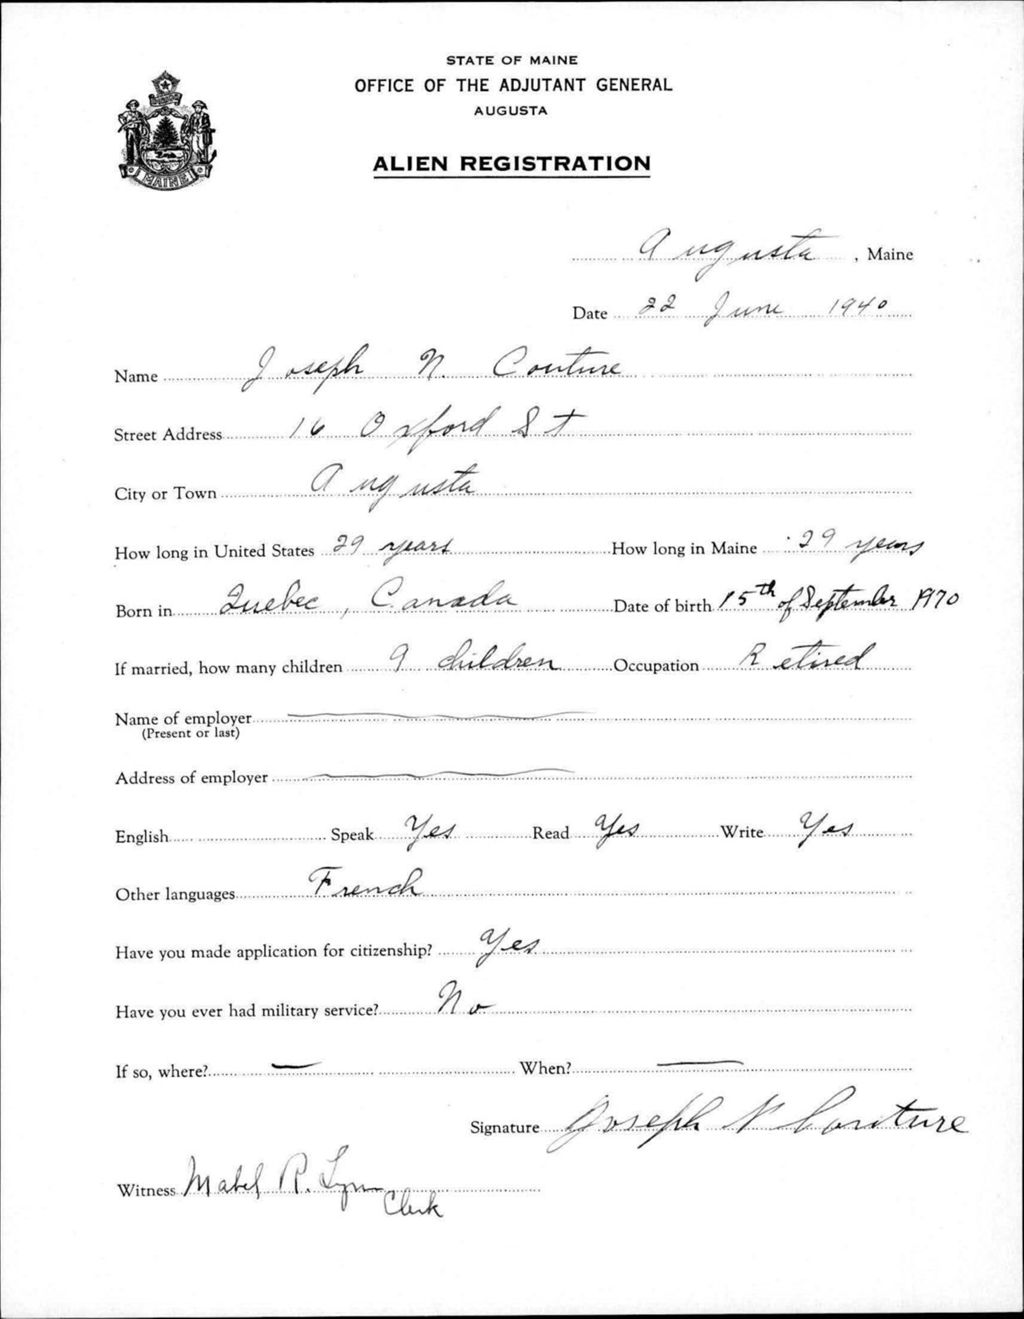 STATE OF MAINE
OFFICE OF THE ADJUTANT GENERAL
AUGUSTA
ALIEN REGISTRATION
MAINE
Augusta, Maine
Date 22 June 1940
Name Joseph N. Couture
Street Address 16 Oxford St
City or Town Augusta
How long in United States 29 years How long in Maine 29 years
Born in Quebec, Canada Date of birth 15th of September 1970
If married, how many children 9 children Occupation Retired
Name of employer
(Present or last)
Address of employer
English Speak Yes Read Yes Write Yes
Other languages French
Have you made application for citizenship? Yes
Have you ever had military service? No
If so, where? — When? —
Signature Joseph N Couture
Witness Mabel R. Lynn
Clerk